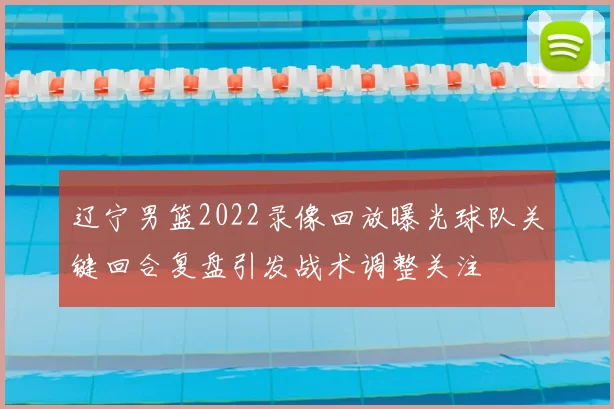 辽宁男篮2022录像回放曝光球队关
键回合复盘引发战术调整关注